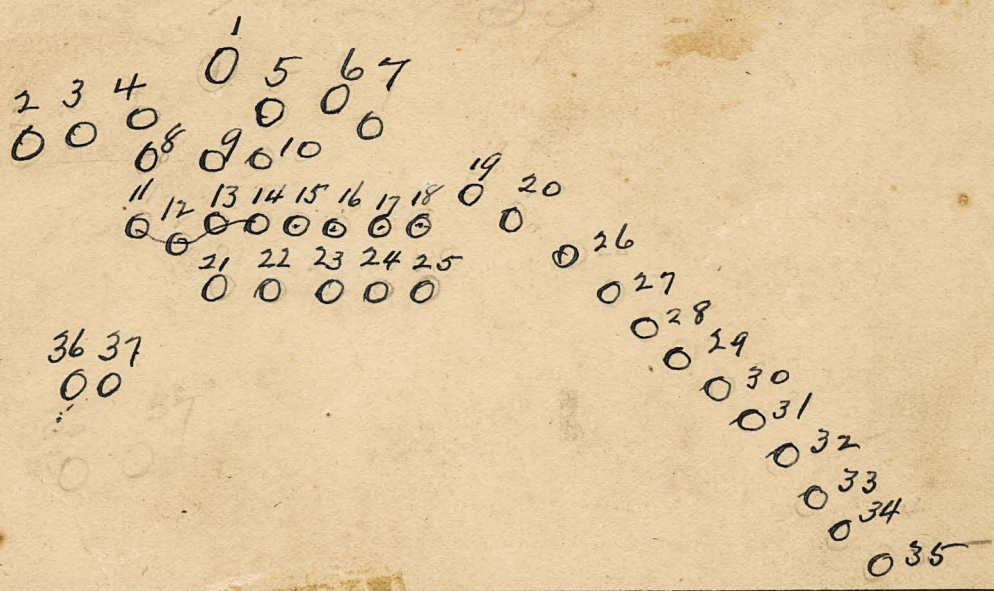 1
2 3 4 5 6 7
8 9 10
11 12 13 14 15 16 17 18 19 20
21 22 23 24 25 26
27
28
29
36 37
30
31
32
33
34
35